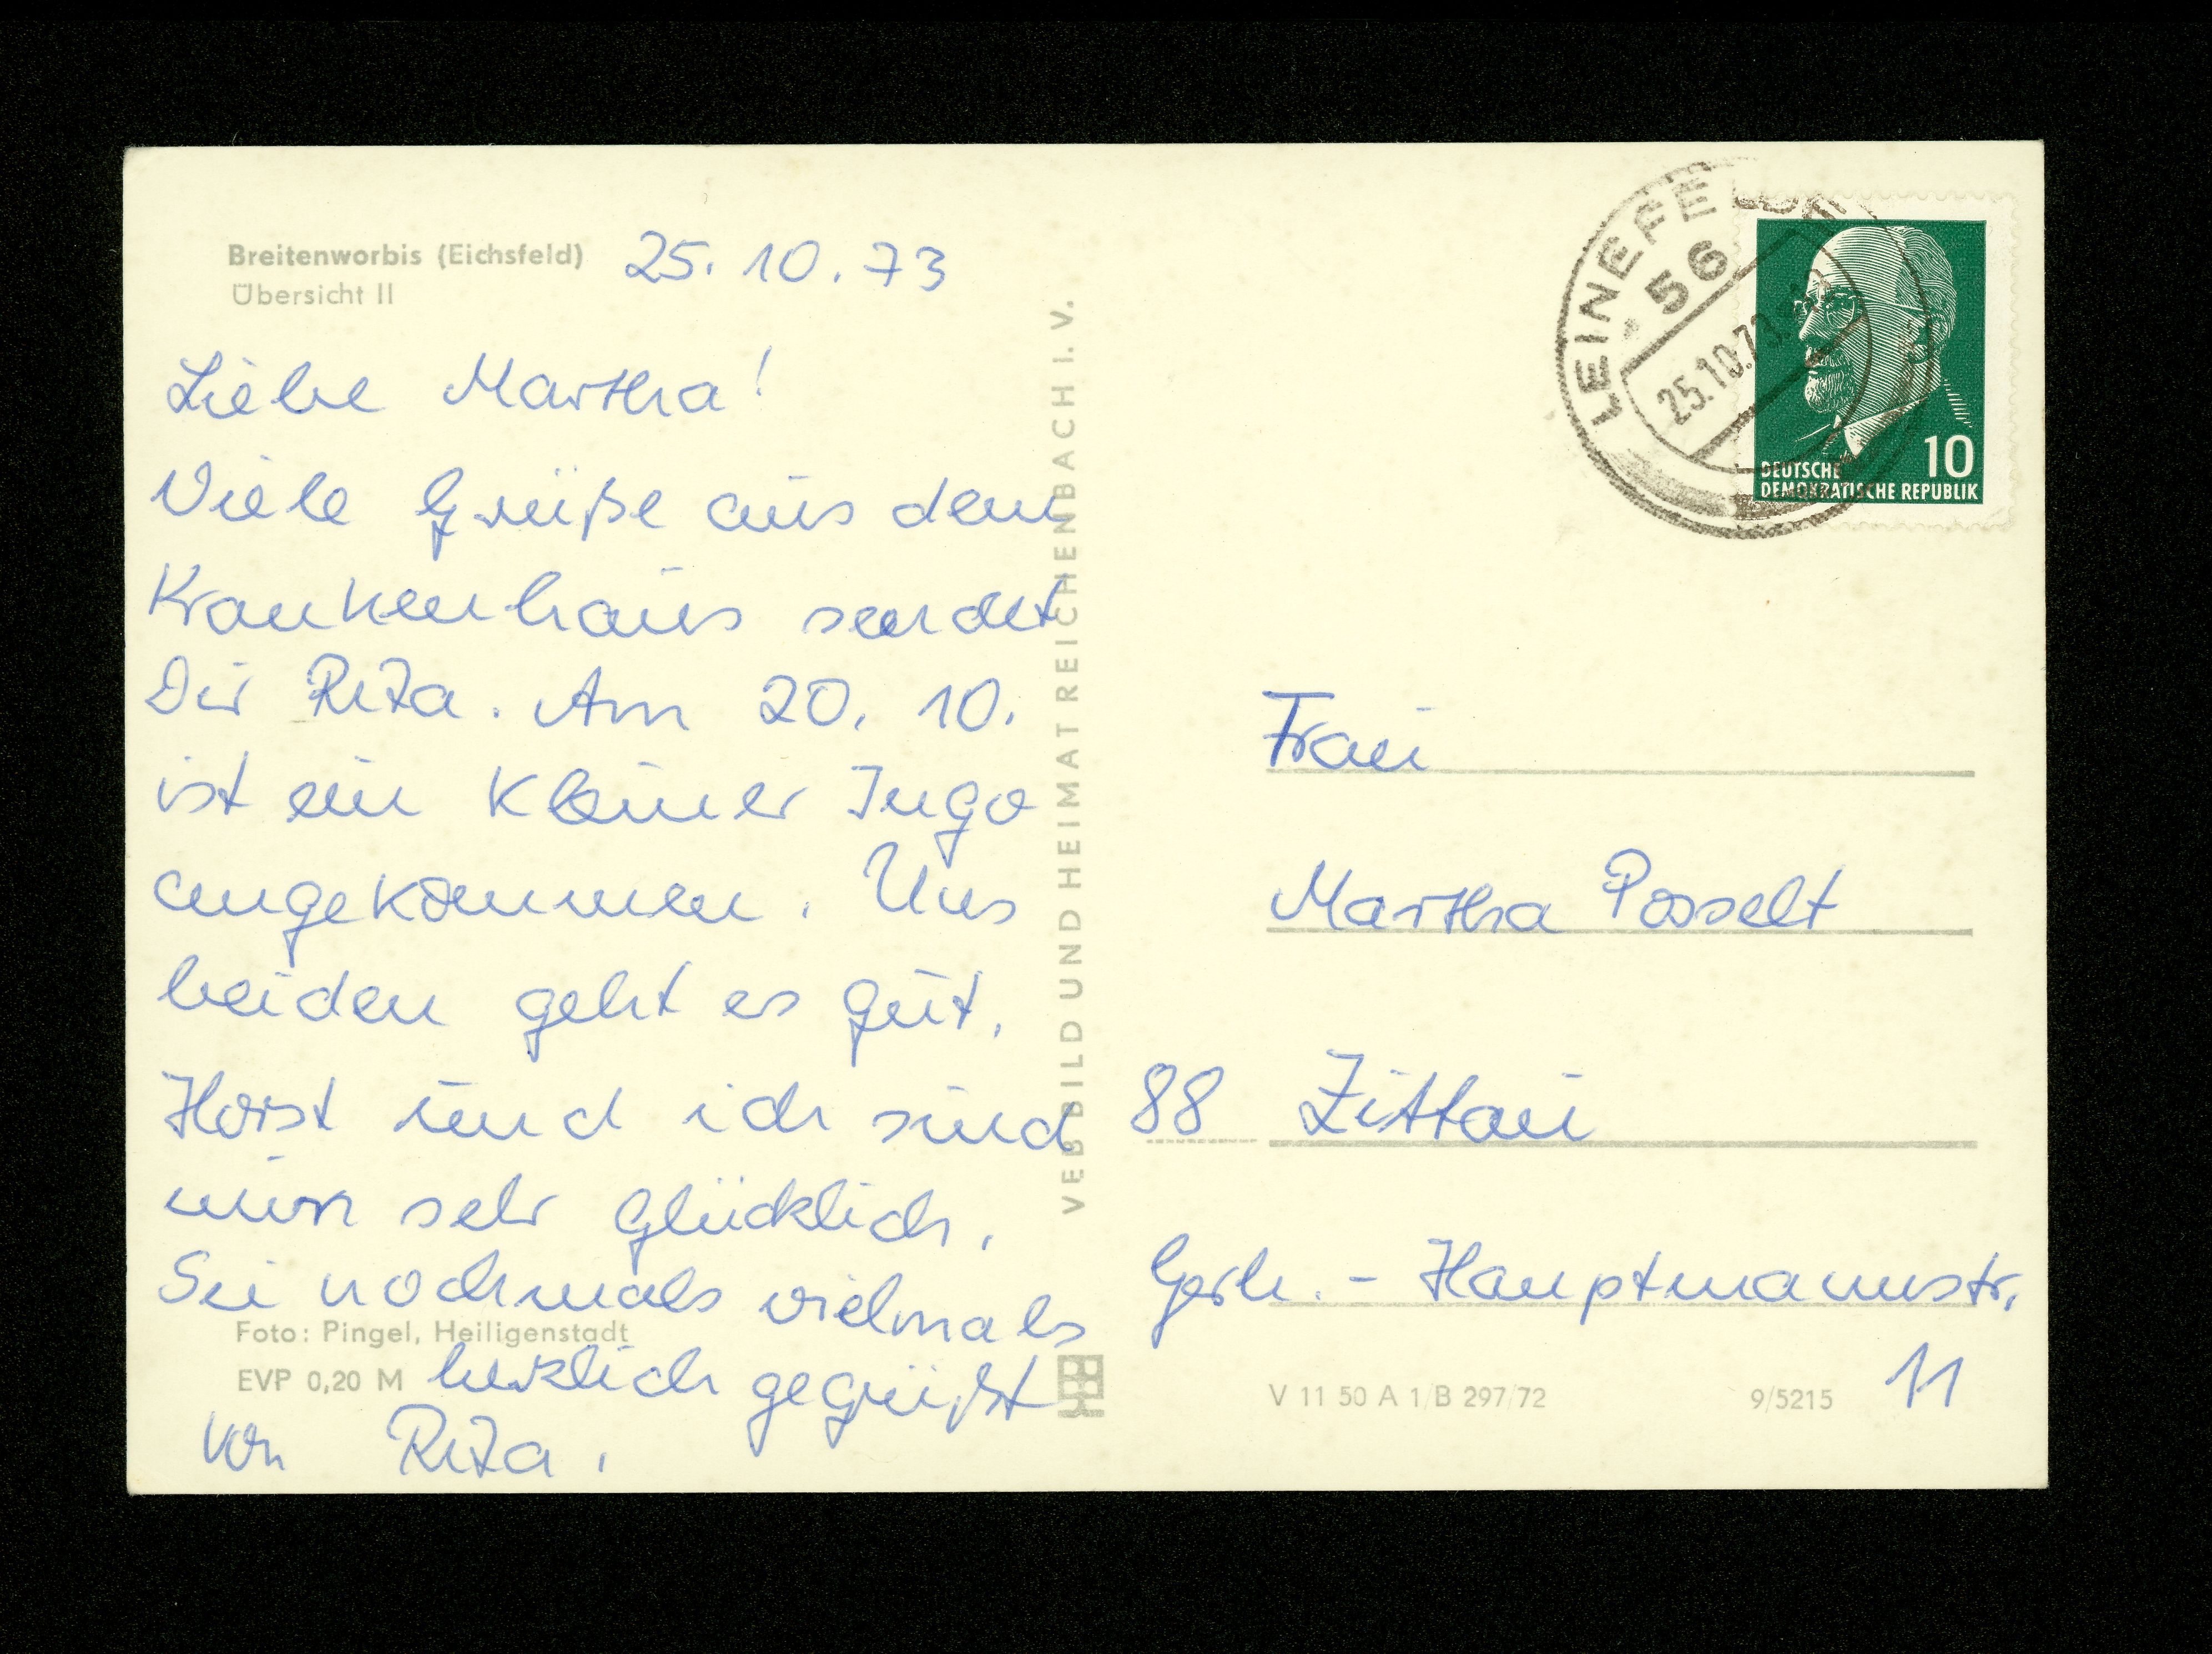 Breitenworbis (Eichsfeld)
Übersicht II
25. 10. 73
Liebe Martha!
Viele Grüße aus dem
Krankenhaus sendet
Dir Rita. Am 20. 10.
ist ein kleiner Ingo
angekommen. Uns
beiden geht es gut.
Horst und ich sind
nun sehr glücklich.
Sei nochmals vielmals
herzlich gegrüßt
von Rita.
Foto: Pingel, Heiligenstadt
EVP 0,20 M
VEB BILD UND HEIMAT REICHENBACH I. V.
LEINEFELDE
56
25.10.73
10
DEUTSCHE
DEMOKRATISCHE REPUBLIK
Frau
Martha Posselt
88 Zittau
Gerh.-Hauptmannstr.
11
V 11 50 A 1/B 297/72
9/5215